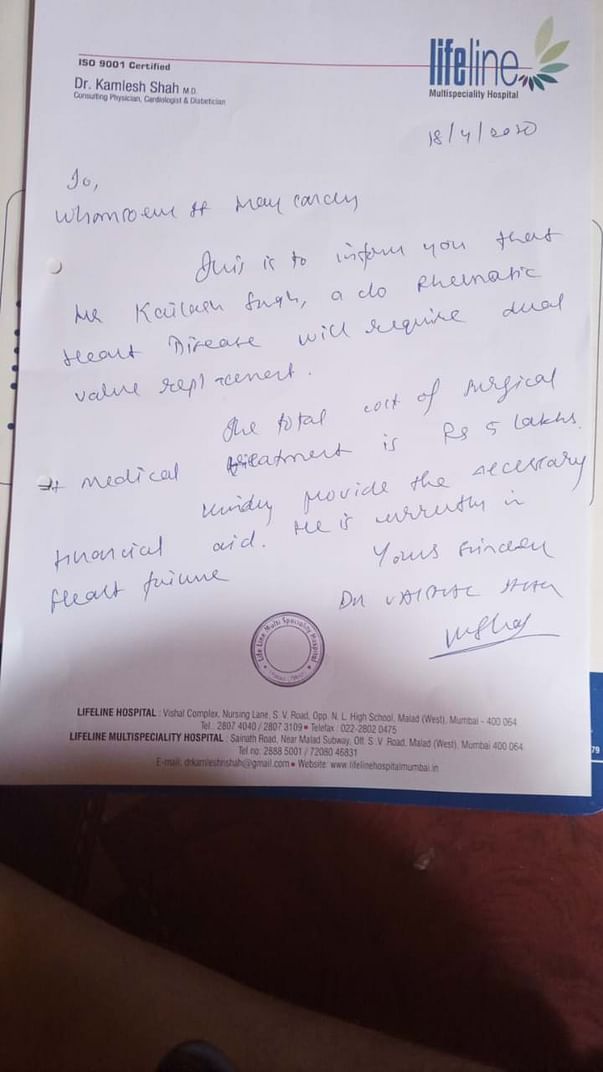 ISO 9001 Certified
Dr. Kamlesh Shah M.D.
Consulting Physician, Cardiologist & Diabetician
lifeline
Multispeciality Hospital
18/4/2020
To,
Whomsoever It May Concern
This is to inform you that
Mr Kailash Singh, a c/o Rhematic
Heart Disease will require dual
valve replacement.
The total cost of surgical
+ medical treatment is Rs 5 lakhs.
Kindly provide the necessary
financial aid. He is currently in
Heart failure
Yours sincerely
Dr Shah
Life Line Multi Speciality Hospital
LIFELINE HOSPITAL : Vishal Complex, Nursing Lane, S. V. Road, Opp. N. L. High School, Malad (West), Mumbai - 400 064
Tel : 2807 4040 / 2807 3109 • Telefax : 022-2802 0475
LIFELINE MULTISPECIALITY HOSPITAL : Sainath Road, Near Malad Subway, Off. S. V. Road, Malad (West), Mumbai 400 064
Tel no. 2888 5001 / 72080 46831
E-mail: drkamleshrshah@gmail.com • Website: www.lifelinehospitalmumbai.in
79